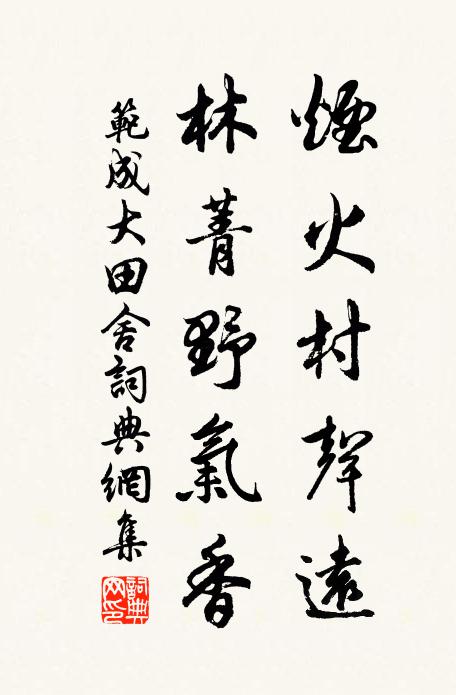 煙火村聲遠
林菁野氣香
範成大田舍詞典網集
詞典網印